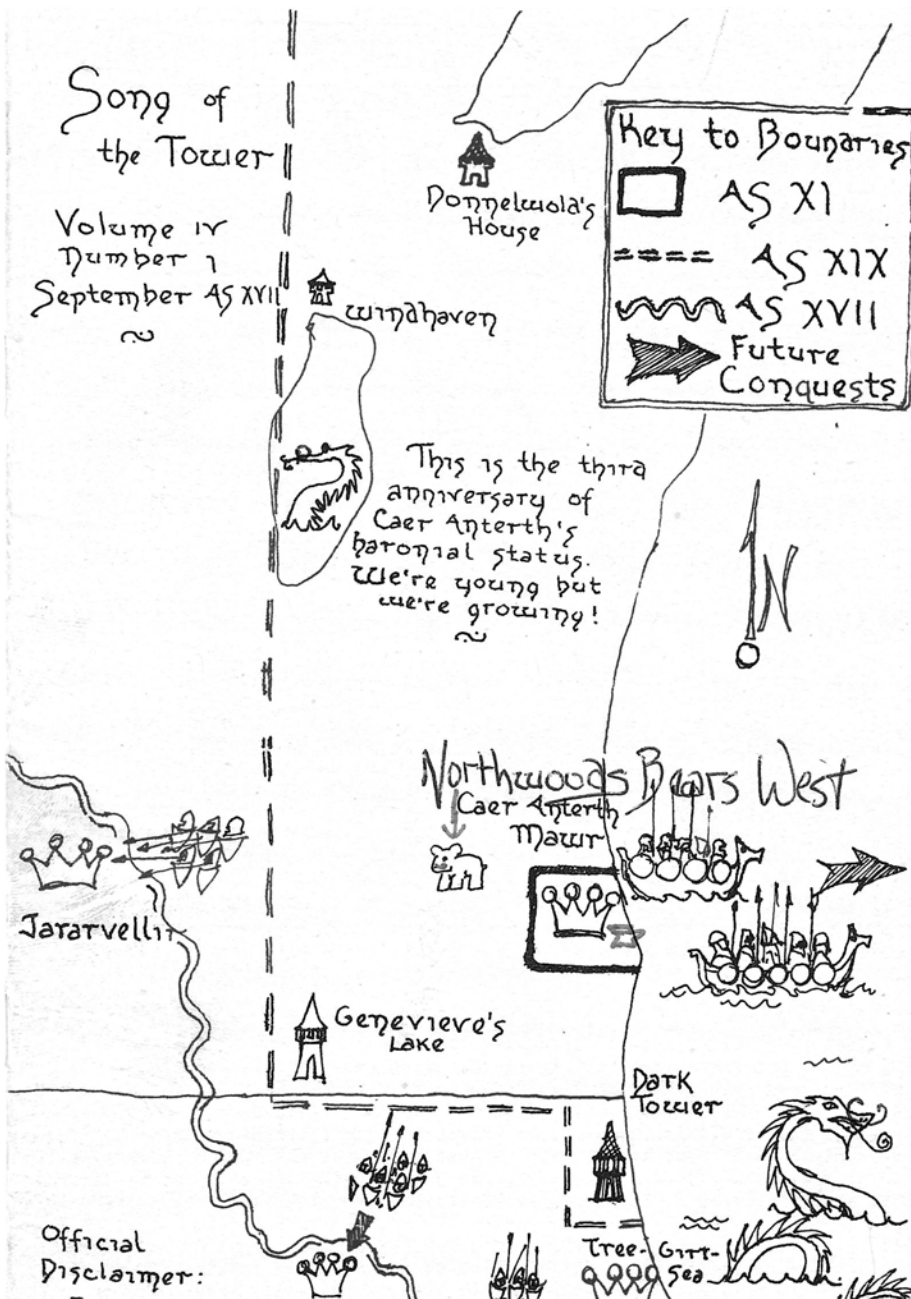 Song of
the Tower
Volume IV
Number 1
September AS XVII
Donnelwola's
House
Key to Bounaries
AS XI
AS XIX
AS XVII
Future
Conquests
Windhaven
This is the third
anniversary of
Caer Anterth's
baronial status.
We're young but
we're growing!
N
Northwoods Bears West
Caer Anterth
Mawr
Jararvellir
Genevieve's
Lake
Dark
Tower
Tree-Girt-
Sea
Official
Disclaimer: